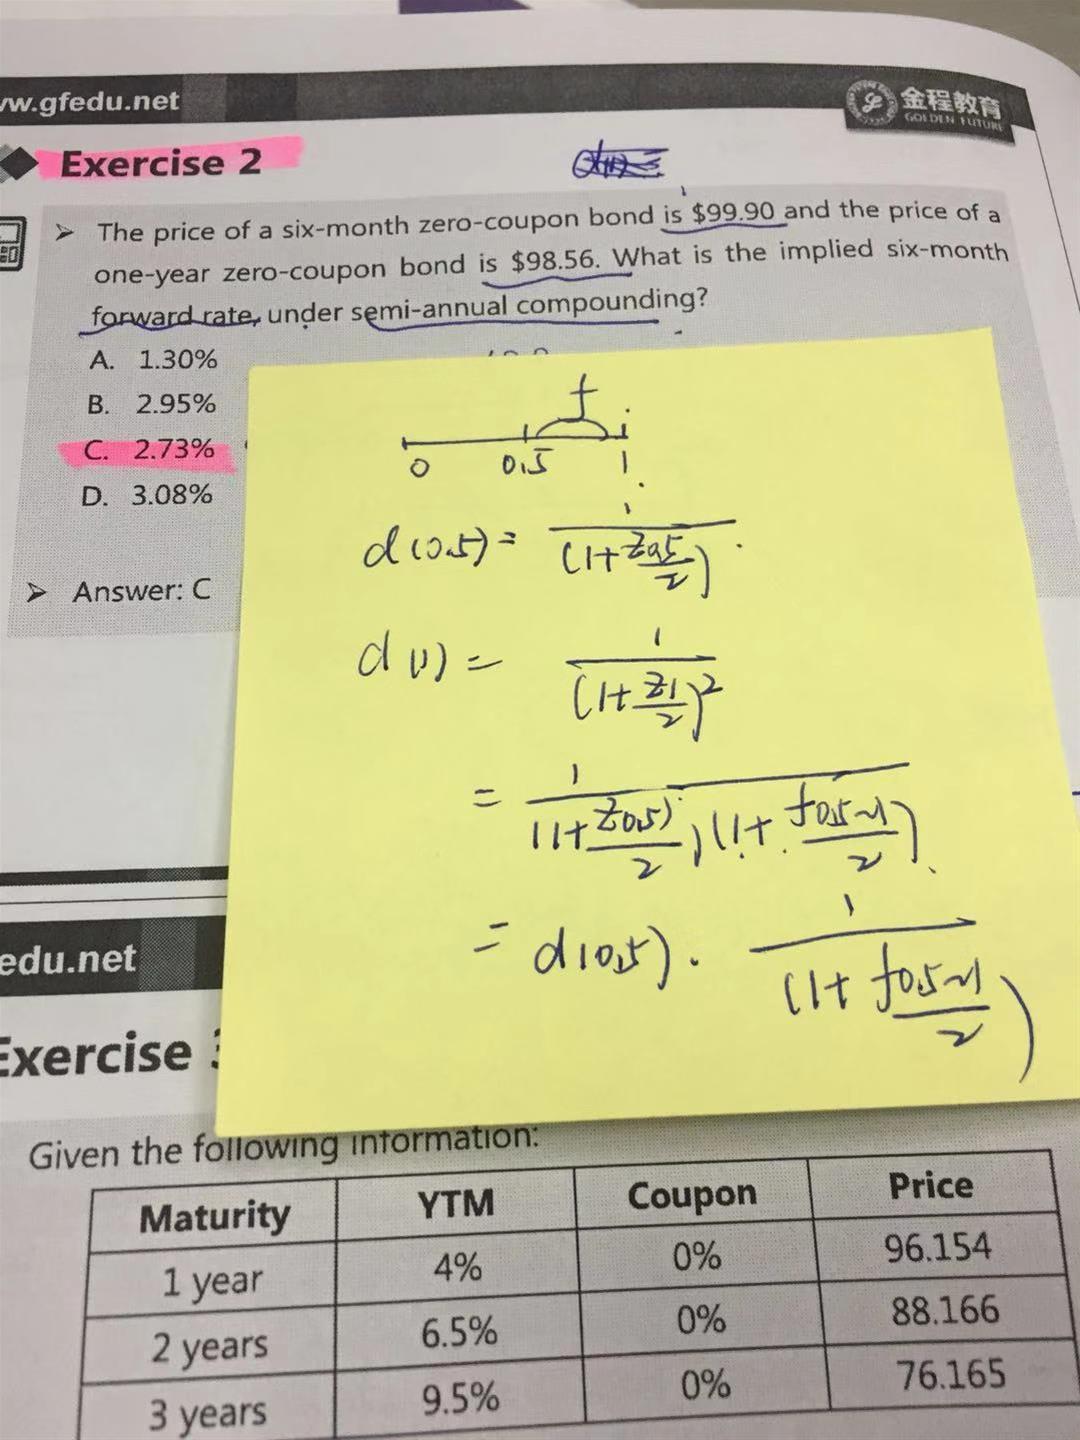 vw.gfedu.net
金程教育
GOLDEN FUTURE
Exercise 2
The price of a six-month zero-coupon bond is $99.90 and the price of a
one-year zero-coupon bond is $98.56. What is the implied six-month
forward rate, under semi-annual compounding?
A. 1.30%
B. 2.95%
C. 2.73%
D. 3.08%
Answer: C
f
0 0.5 1
d(0.5) = 1/(1+Z0.5/2)
d(1) = 1/(1+Z1/2)²
= 1/(1+Z0.5)/2)(1+f0.5~1/2)
= d(0.5) · 1/(1+f0.5~1/2)
edu.net
Exercise 3
Given the following information:
Maturity YTM Coupon Price
1 year 4% 0% 96.154
2 years 6.5% 0% 88.166
3 years 9.5% 0% 76.165